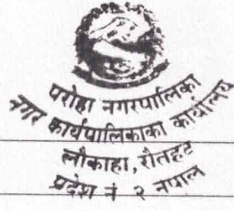 परोहा नगरपालिका
नगर कार्यपालिकाको कार्यालय
लौकाहा, रौतहट
प्रदेश नं २ नेपाल